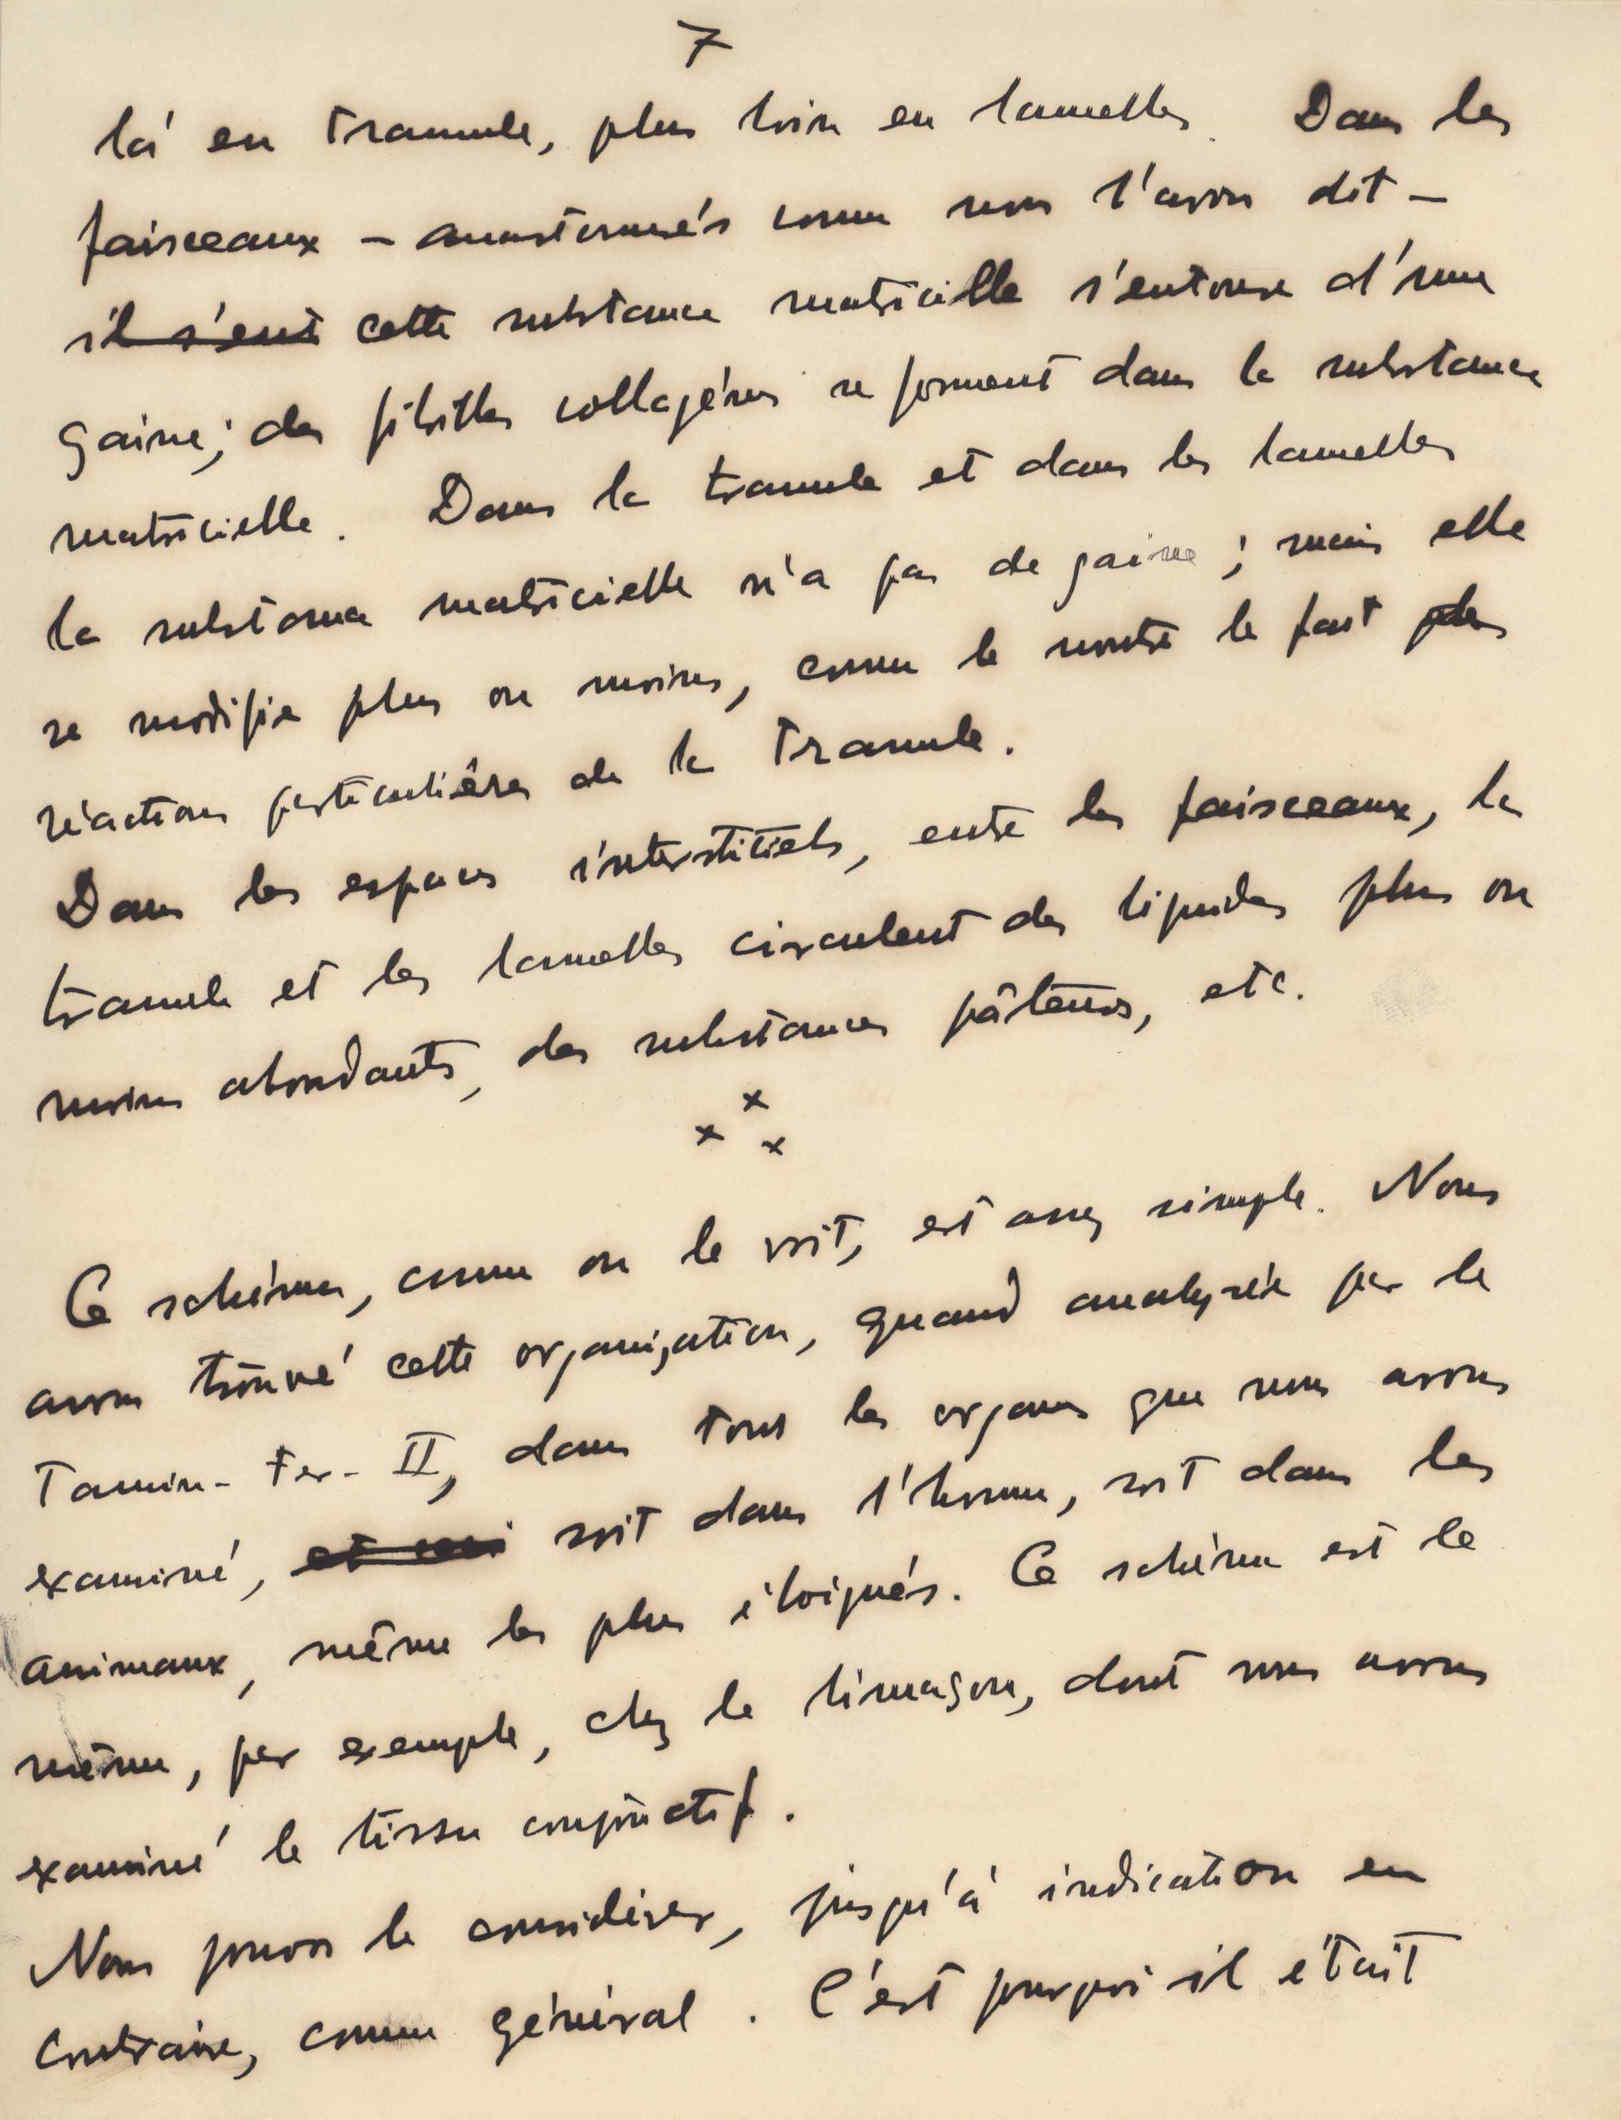 7
là en tramule, plus loin en lamelles. Dans les
faisceaux – anastomosés comme nous l'avons dit –
il s'ent cette substance matricielle s'entoure d'une
gaine; des fibrilles collagènes se forment dans la substance
matricielle. Dans la tramule et dans les lamelles
la substance matricielle n'a pas de gaine; mais elle
se modifie plus ou moins, comme le montre le fait des
réactions particulières de la tramule.
Dans les espaces interstitiels, entre les faisceaux, la
tramule et les lamelles circulent des liquides plus ou
moins abondants, des substances pâteuses, etc.
x x x
Ce schéma, comme on le voit, est assez simple. Nous
avons trouvé cette organisation, quand analysée par le
Tannin-Fer-II, dans tous les organes que nous avons
examiné, et ceci soit dans l'homme, soit dans les
animaux, même les plus éloignés. Ce schéma est le
même, par exemple, chez le limaçon, dont nous avons
examiné le tissu conjonctif.
Nous pouvons le considérer, jusqu'à indication en
contraire, comme général. C'est pourquoi il était